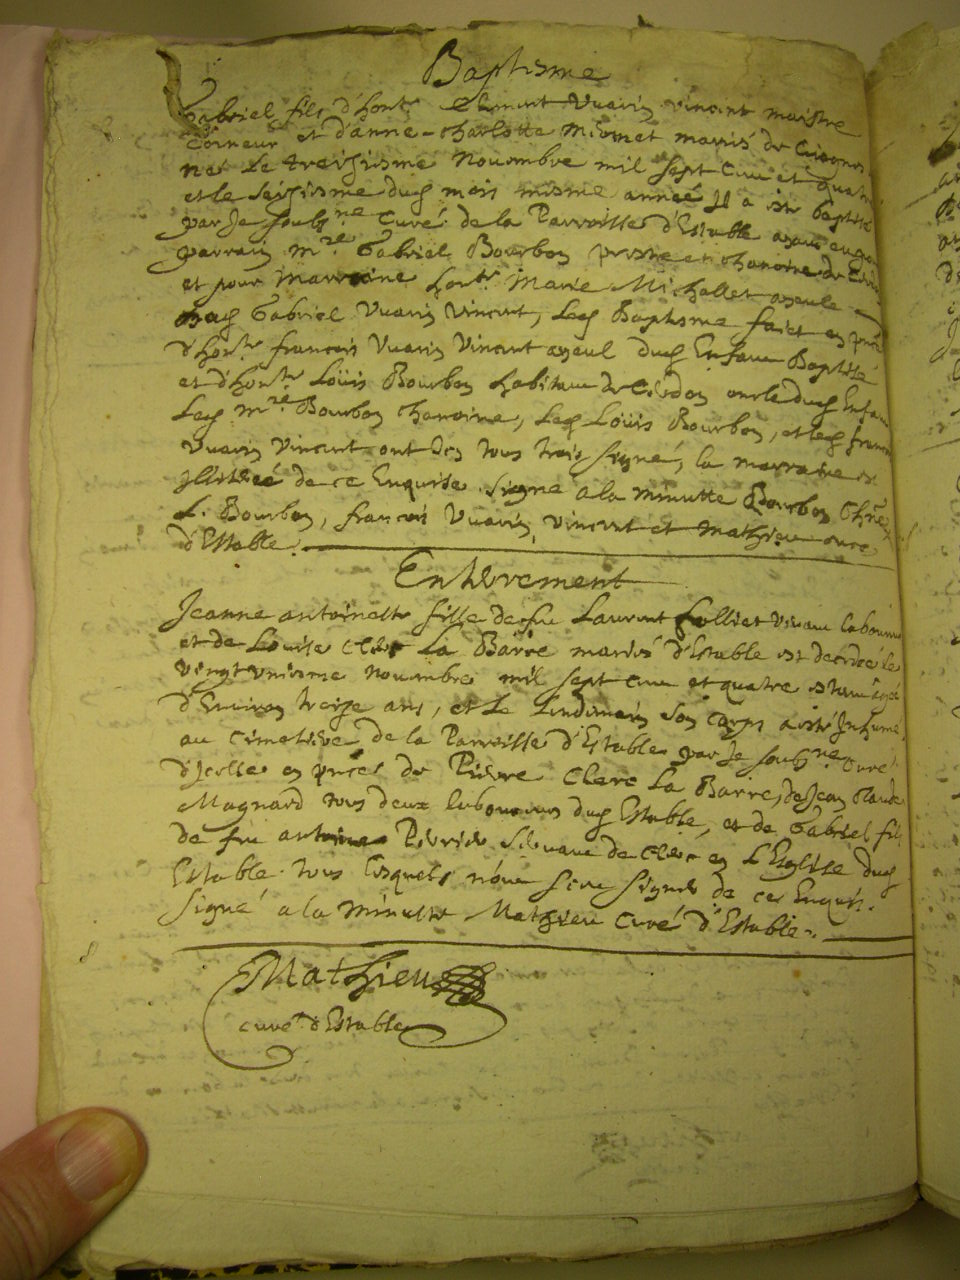 Baptisme
Gabriel fils d'hont. Clement Vuarin Vincent maistre
et d'anne-charlotte mariés de
ne Le treiziesme Novembre mil sept cens et quatre
et le seiziesme dud mois mesme année Il a esté baptisé
par Je soubs.ne Curé de la Parroisse d'Estable
parrain m.re Gabriel Bourbon prestre et chanoine de
et pour marraine hont. Marie Michallet ayeule
Gabriel Vuarin Vincent, Led Baptisme faict en
d'hont. francois Vuarin Vincent ayeul dud Enfant Baptisé
et d'hont. Loüis Bourbon habitant de Cerdon oncle dud Enfant
Led m.re Bourbon chanoine, Led Loüis Bourbon, et led francois
Vuarin Vincent ont tous trois signé, la marraine
de ce Enquise. Signé a la minutte Bourbon
L. Bourbon, francois Vuarin, Vincent et Mathieu curé
d'Estable.
Enterrement
Jeanne antoinette fille de feu Laurent Folliet vivant laboureur
et de Louise Clerc La Barre mariés d'Estable est decedée le
vingt uniesme Novembre mil sept cens et quatre estant agée
d'Environ treize ans, et Le Lendemain son corps a esté Inhumé
au cimetiere de la Parroisse d'Estable par Je soubs.ne curé
d'Icelle en prces de Pierre Clerc La Barre, de Jean Claude
Magnard tous deux laboureurs dud Estable, et de Gabriel fils
de feu antoine servant de Clerc en L'Eglise dud
Estable tous lesquels n'ont sceu signer de ce Enquis.
Signé a la minutte Mathieu Curé d'Estable.
Mathieu
curé d'Estable